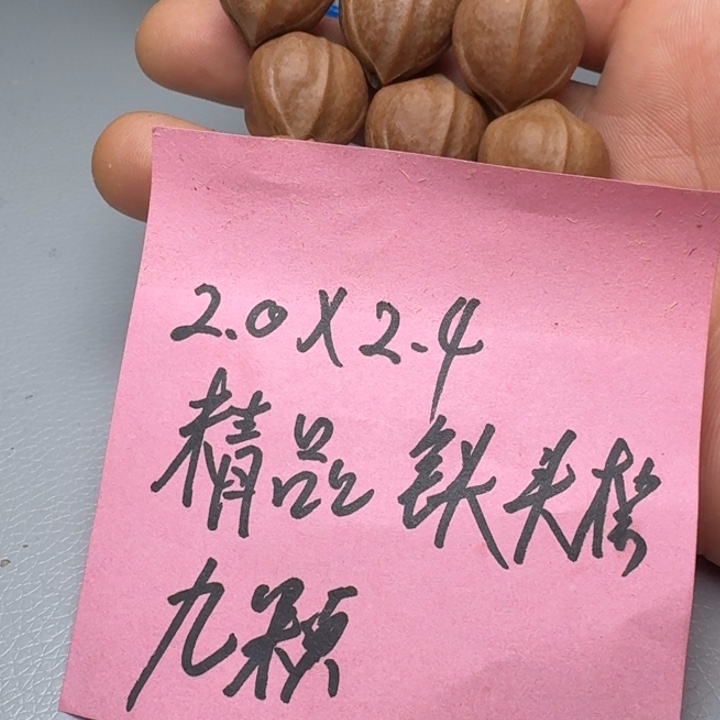 2.0X2.4
精品铁头核
九颗